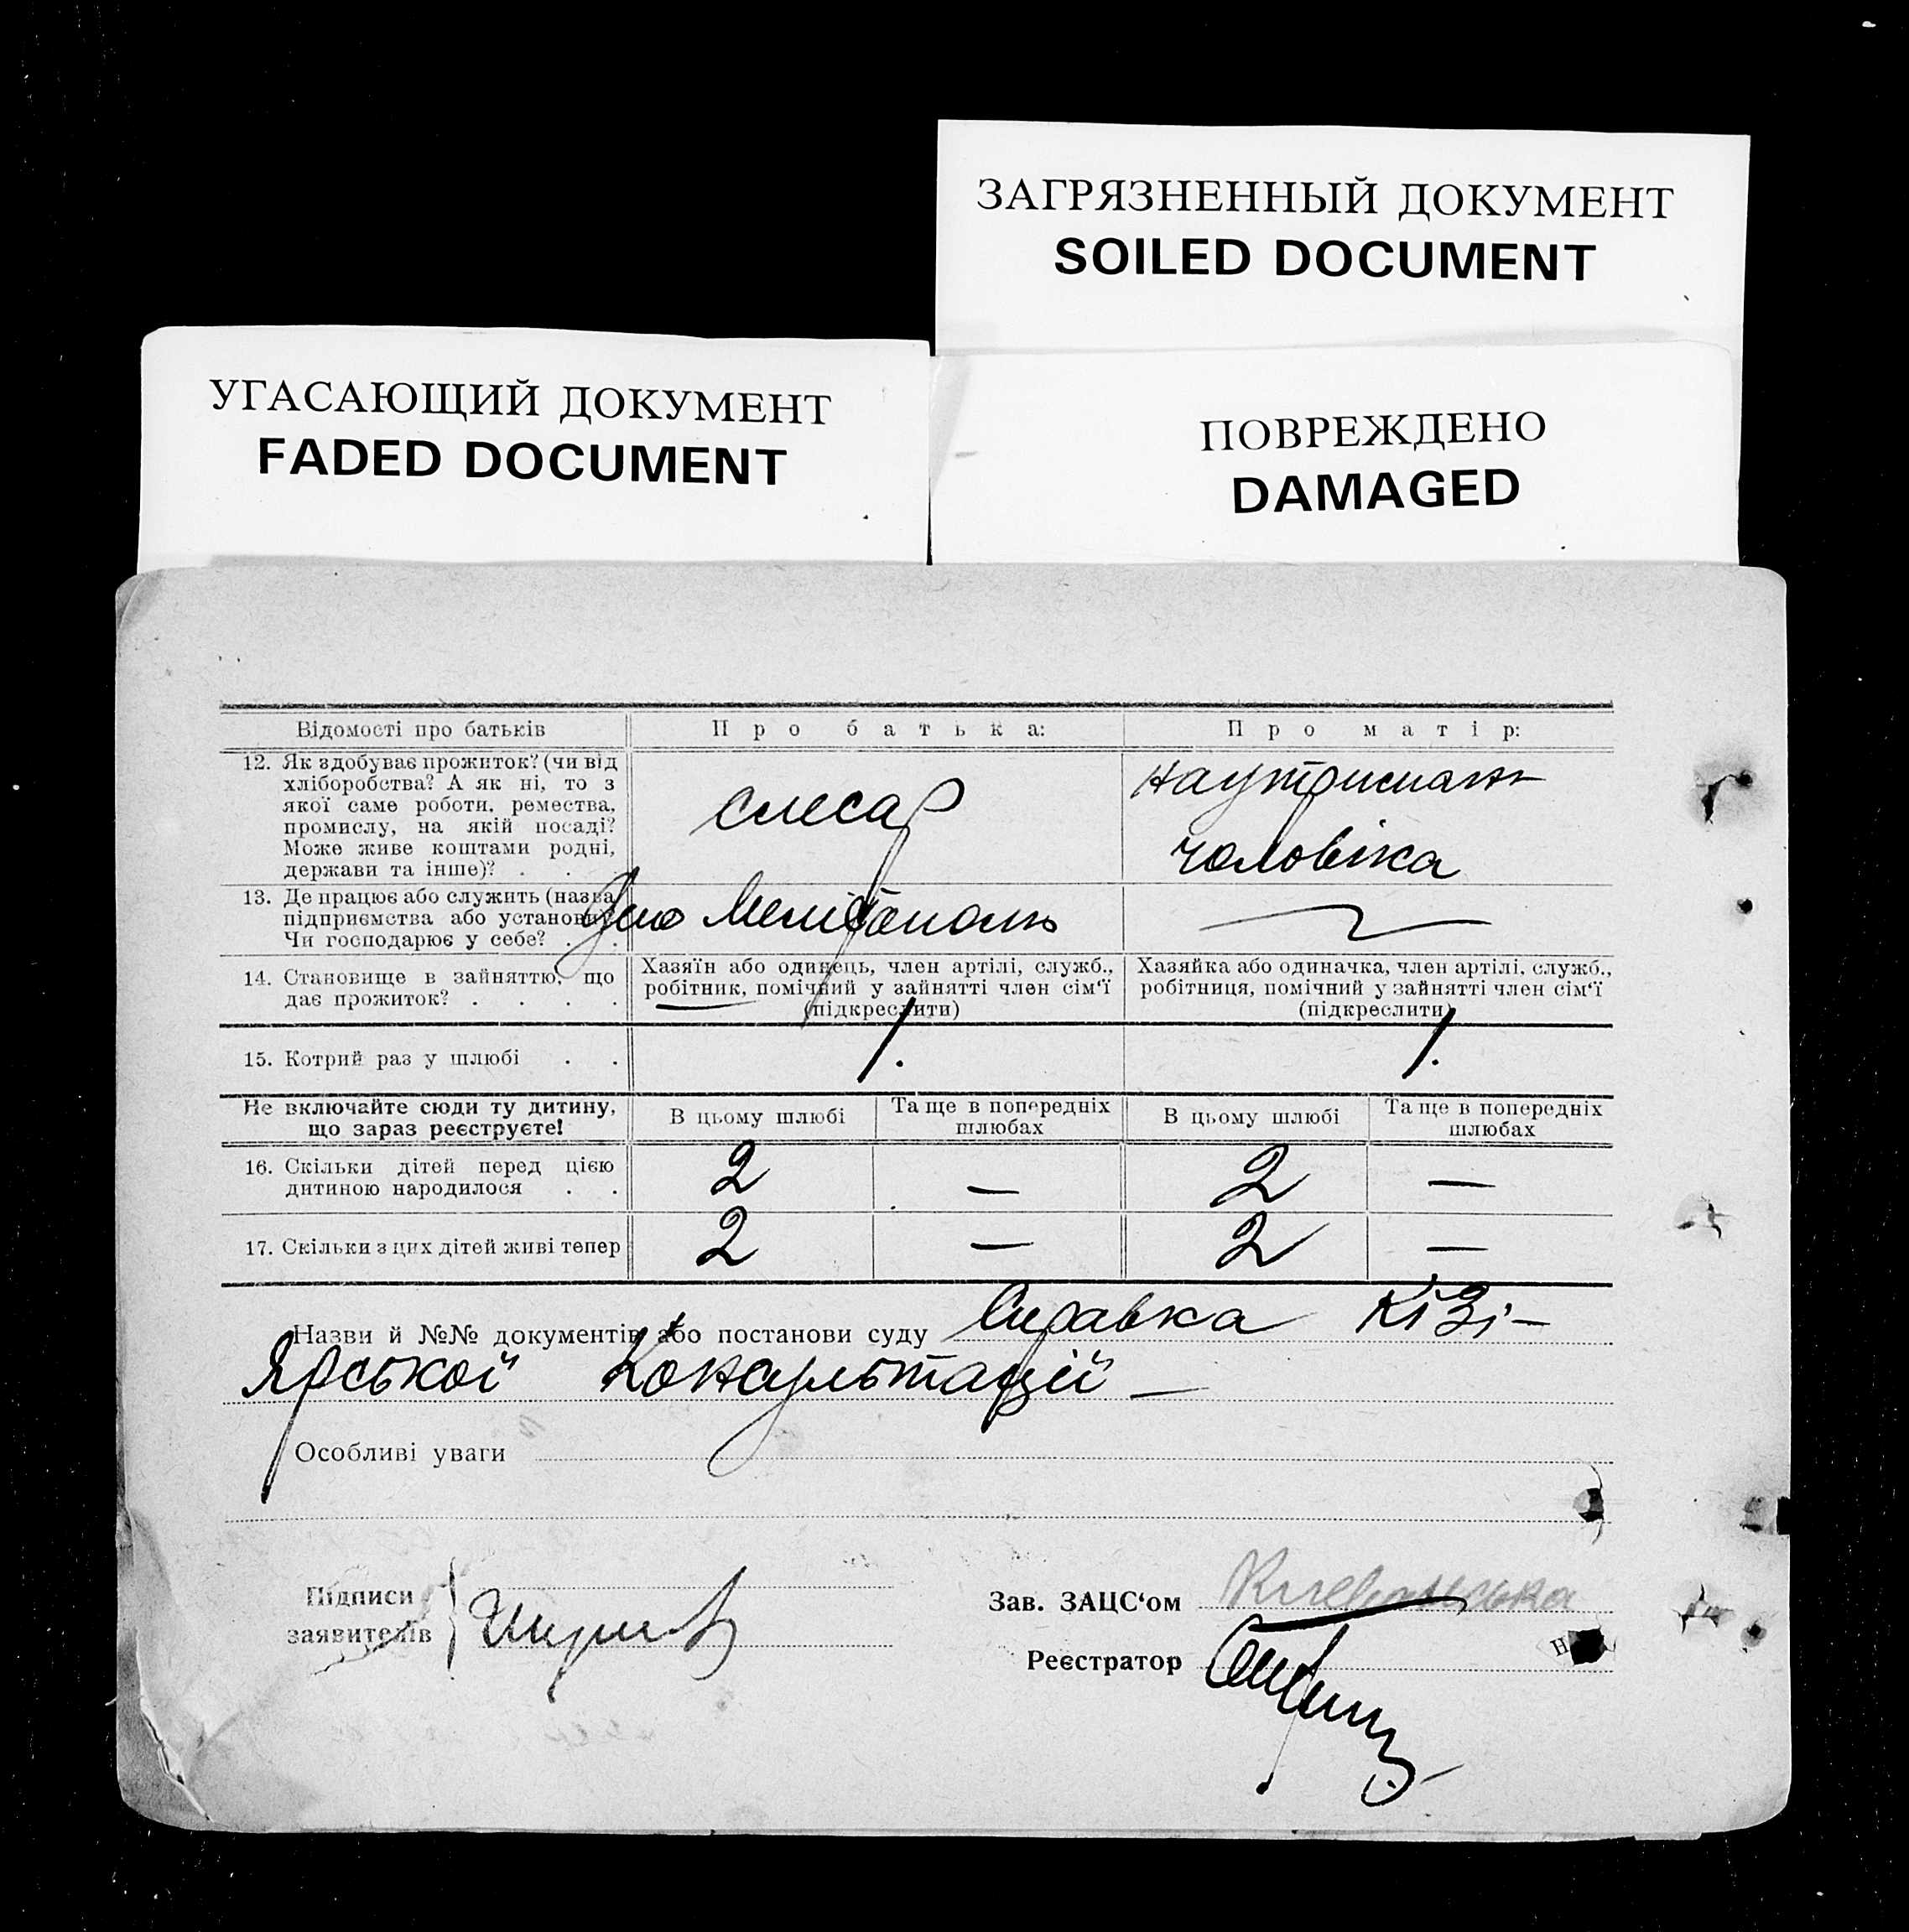 ЗАГРЯЗНЕННЫЙ ДОКУМЕНТ
SOILED DOCUMENT
УГАСАЮЩИЙ ДОКУМЕНТ
FADED DOCUMENT
ПОВРЕЖДЕНО
DAMAGED
Відомості про батьків
Про батька:
Про матір:
12. Як здобуває прожиток? (чи від
хліборобства? А як ні, то з
якої саме роботи, ремества,
промислу, на якій посаді?
Може живе коштами родні,
держави та інше)? . .
слесар
чоловіка
13. Де працює або служить (назва
підприємства або установи)?
Чи господарює у себе? . .
Депо Мелітополь
14. Становище в зайняттю, що
дає прожиток? . . . .
Хазяїн або одинець, член артілі, служб.,
робітник, помічний у зайнятті член сім‘ї
(підкреслити)
Хазяйка або одиначка, член артілі, служб.,
робітниця, помічний у зайнятті член сім‘ї
(підкреслити)
15. Котрий раз у шлюбі . .
1.
1.
Не включайте сюди ту дитину,
що зараз реєструєте!
В цьому шлюбі
Та ще в попередніх
шлюбах
В цьому шлюбі
Та ще в попередніх
шлюбах
16. Скільки дітей перед цією
дитиною народилося . .
2
—
2
—
17. Скільки з цих дітей живі тепер
2
—
2
—
Назви й №№ документів або постанови суду Справка Кізі-
Ярської Консультації —
Особливі уваги
Підписи
заявителів
Зав. ЗАЦС‘ом
Реєстратор